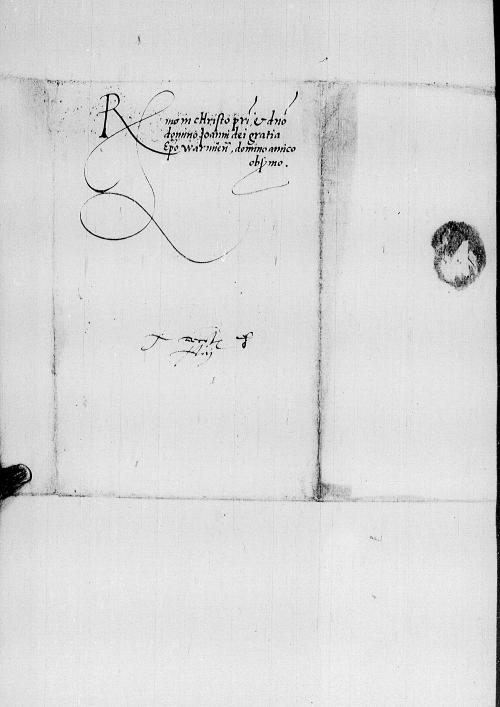 Rmo in christo pri et dno
domino Joanni dei gratia
Epo warmien̄, domino amico
obsmo.